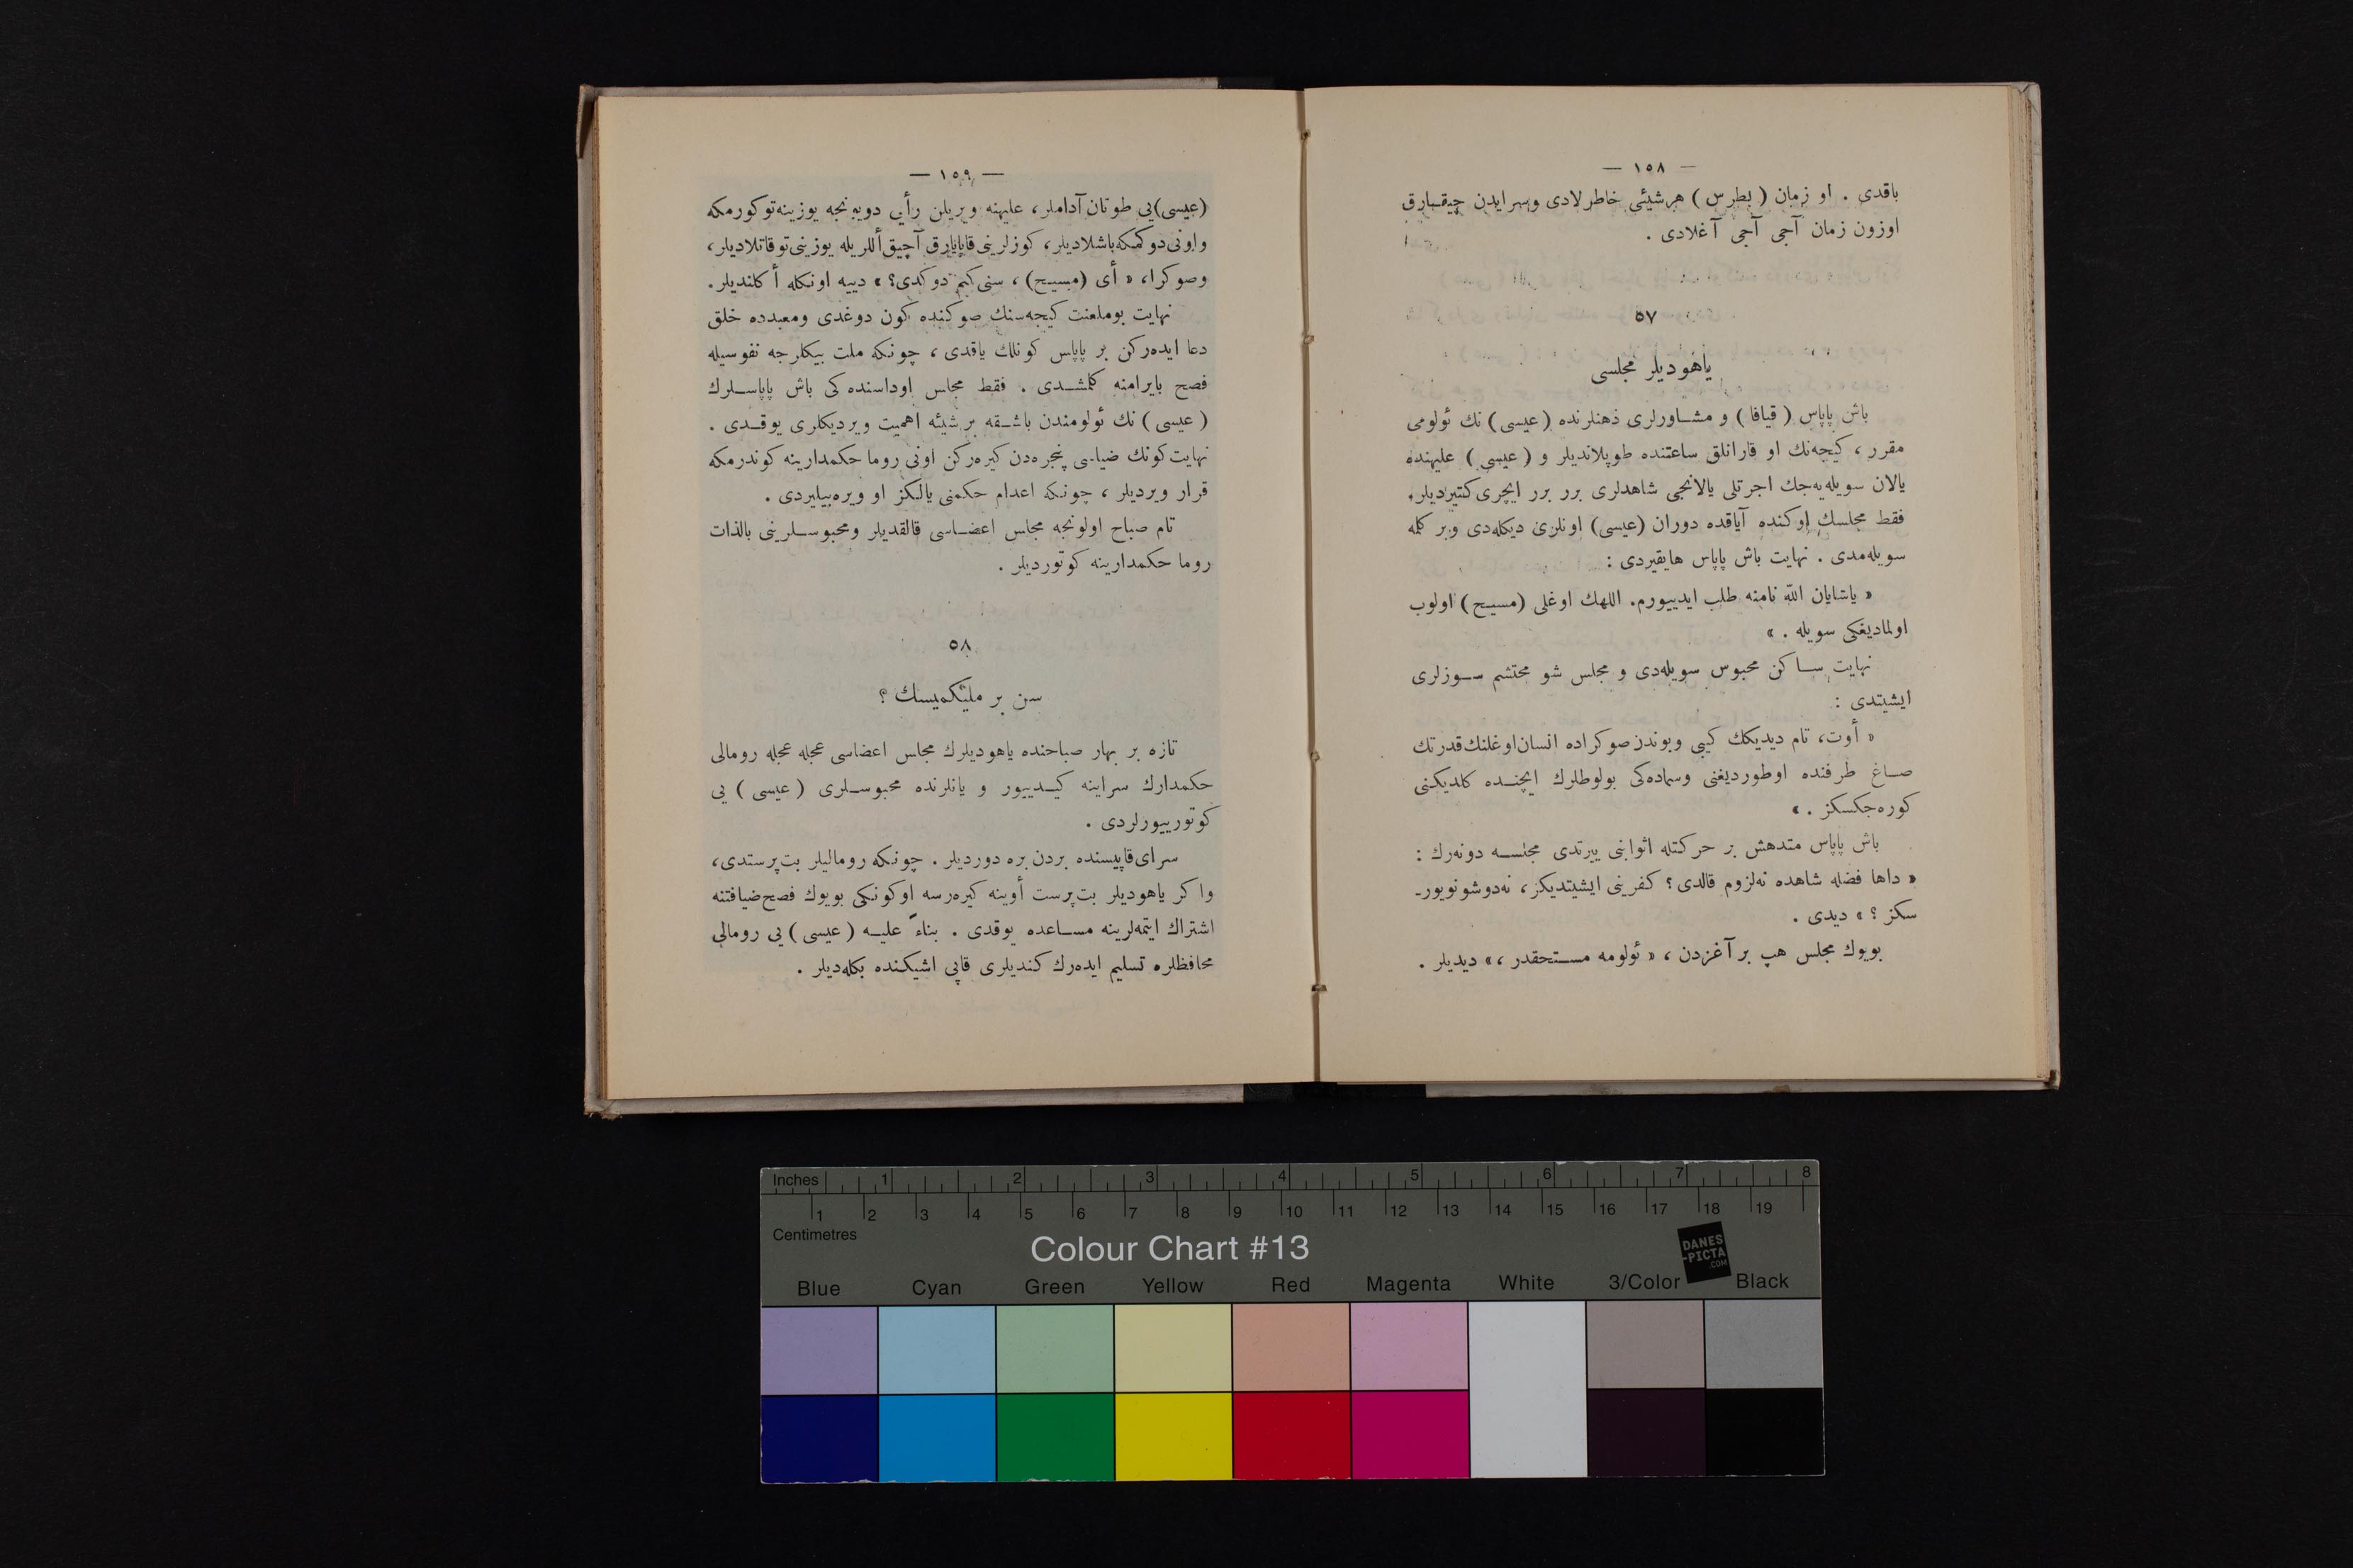 — ١٥٨ —
باقدی . او زمان ( بطرس ) هرشیئی خاطرلادی وسرایدن چیقـارق
اوزون زمان آجی آجی آغلادی .
٥٧
یاهودیلر مجلسی
باش پاپاس ( قیافا ) و مشـاورلری ذهنلرنده ( عیسی ) نك ئولومی
مقرر ، كیجه‌نك او قارانلق ساعتنده طوپلاندیلر و ( عیسی ) علیهنده
یالان سویله‌یه‌جك اجرتلی یالانجی شاهدلری برر برر ایچری كتیردیلر.
فقط مجلسك اوكنده آیاقده دوران (عیسی) اونلری دیكله‌دی وبر كلمه
سویله‌مدی . نهایت باش پاپاس هایقیردی :
« یاشایان اللّه نامنه طلب ایدییورم. اللهك اوغلی (مسیح) اولوب
اولمادیغكی سویله . »
نهایت سـاكن محبوس سویله‌دی و مجلس شو محتشم سـوزلری
ایشیتدی :
« أوت، تام دیدیكك كیبی وبوندن‌صوكراده انسان‌اوغلنك‌قدرتك
صـاغ طرفنده اوطوردیغنی وسماده‌كی بولوطلرك ایچنـده كلدیكنی
كوره‌جكسكز . »
باش پاپاس متدهش بر حركتله اثوابنی ییرتدی مجلسـه دونه‌رك :
« داها فضله شاهده نه‌لزوم قالدی ؟ كفرینی ایشیتدیكز، نه‌دوشونویور-
سكز ؟ » دیدی .
بویوك مجلس هپ بر آغزدن ، « ئولومه مسـتحقدر ،» دیدیلر .
— ١٥٩ —
(عیسی)یی طوتان آداملر، علیهنه ویریلن رأیی دویونجه یوزینه‌توكورمكه
واونی‌دوكمكه‌باشلادیلر، كوزلرینی‌قاپایارق آچیق‌أللریله یوزینی‌توقاتلادیلر،
وصوكرا، « أی (مسیح) ، سنی كیم دوكدی؟ » دییه اونكله أكلندیلر.
نهایت بوملعنت كیجه‌سنك صوكنده كون دوغدی ومعبدده خلق
دعا ایده‌ركن بر پاپاس كونلك یاقدی ، چونكه ملت بیكلرجه نفوسیله
فصح بایرامنه كلمشـدی . فقط مجلس اوداسنده كی باش پاپاسـلرك
( عیسی ) نك ئولومندن باشـقه بر شیئه اهمیت ویردیكلری یوقـدی .
نهایت كونك ضیاسی پنجره‌دن كیره‌ركن اونی روما حكمدارینه كوندرمكه
قرار ویردیلر ، چونكه اعدام حكمنی یالكز او ویره‌بیلیردی .
تام صباح اولونجه مجلس اعضـاسی قالقدیلر ومحبوسـلرینی بالذات
روما حكمدارینه كوتوردیلر .
٥٨
سن بر ملیكمیسك ؟
تازه بر بهار صباحنده یاهودیلرك مجلس اعضاسی عجله عجله رومالی
حكمدارك سراینه كیـدییور و یانلرنده محبوسـلری ( عیسی ) یی
كوتورییورلردی .
سرای‌قاپیسنده بردن بره دوردیلر . چونكه رومالیلر بت‌پرستدی،
واكر یاهودیلر بت‌پرست أوینه كیره‌رسه اوكونكی بویوك فصح‌ضیافتنه
اشتراك ایتمه‌لرینه مسـاعده یوقدی . بناءً علیـه ( عیسی ) یی رومالی
محافظلره تسلیم ایده‌رك كندیلری قاپی اشیكنده بكله‌دیلر .
Inches 1 2 3 4 5 6 7 8
1 2 3 4 5 6 7 8 9 10 11 12 13 14 15 16 17 18 19
Centimetres
Colour Chart #13
DANES
-PICTA
.COM
Blue Cyan Green Yellow Red Magenta White 3/Color Black